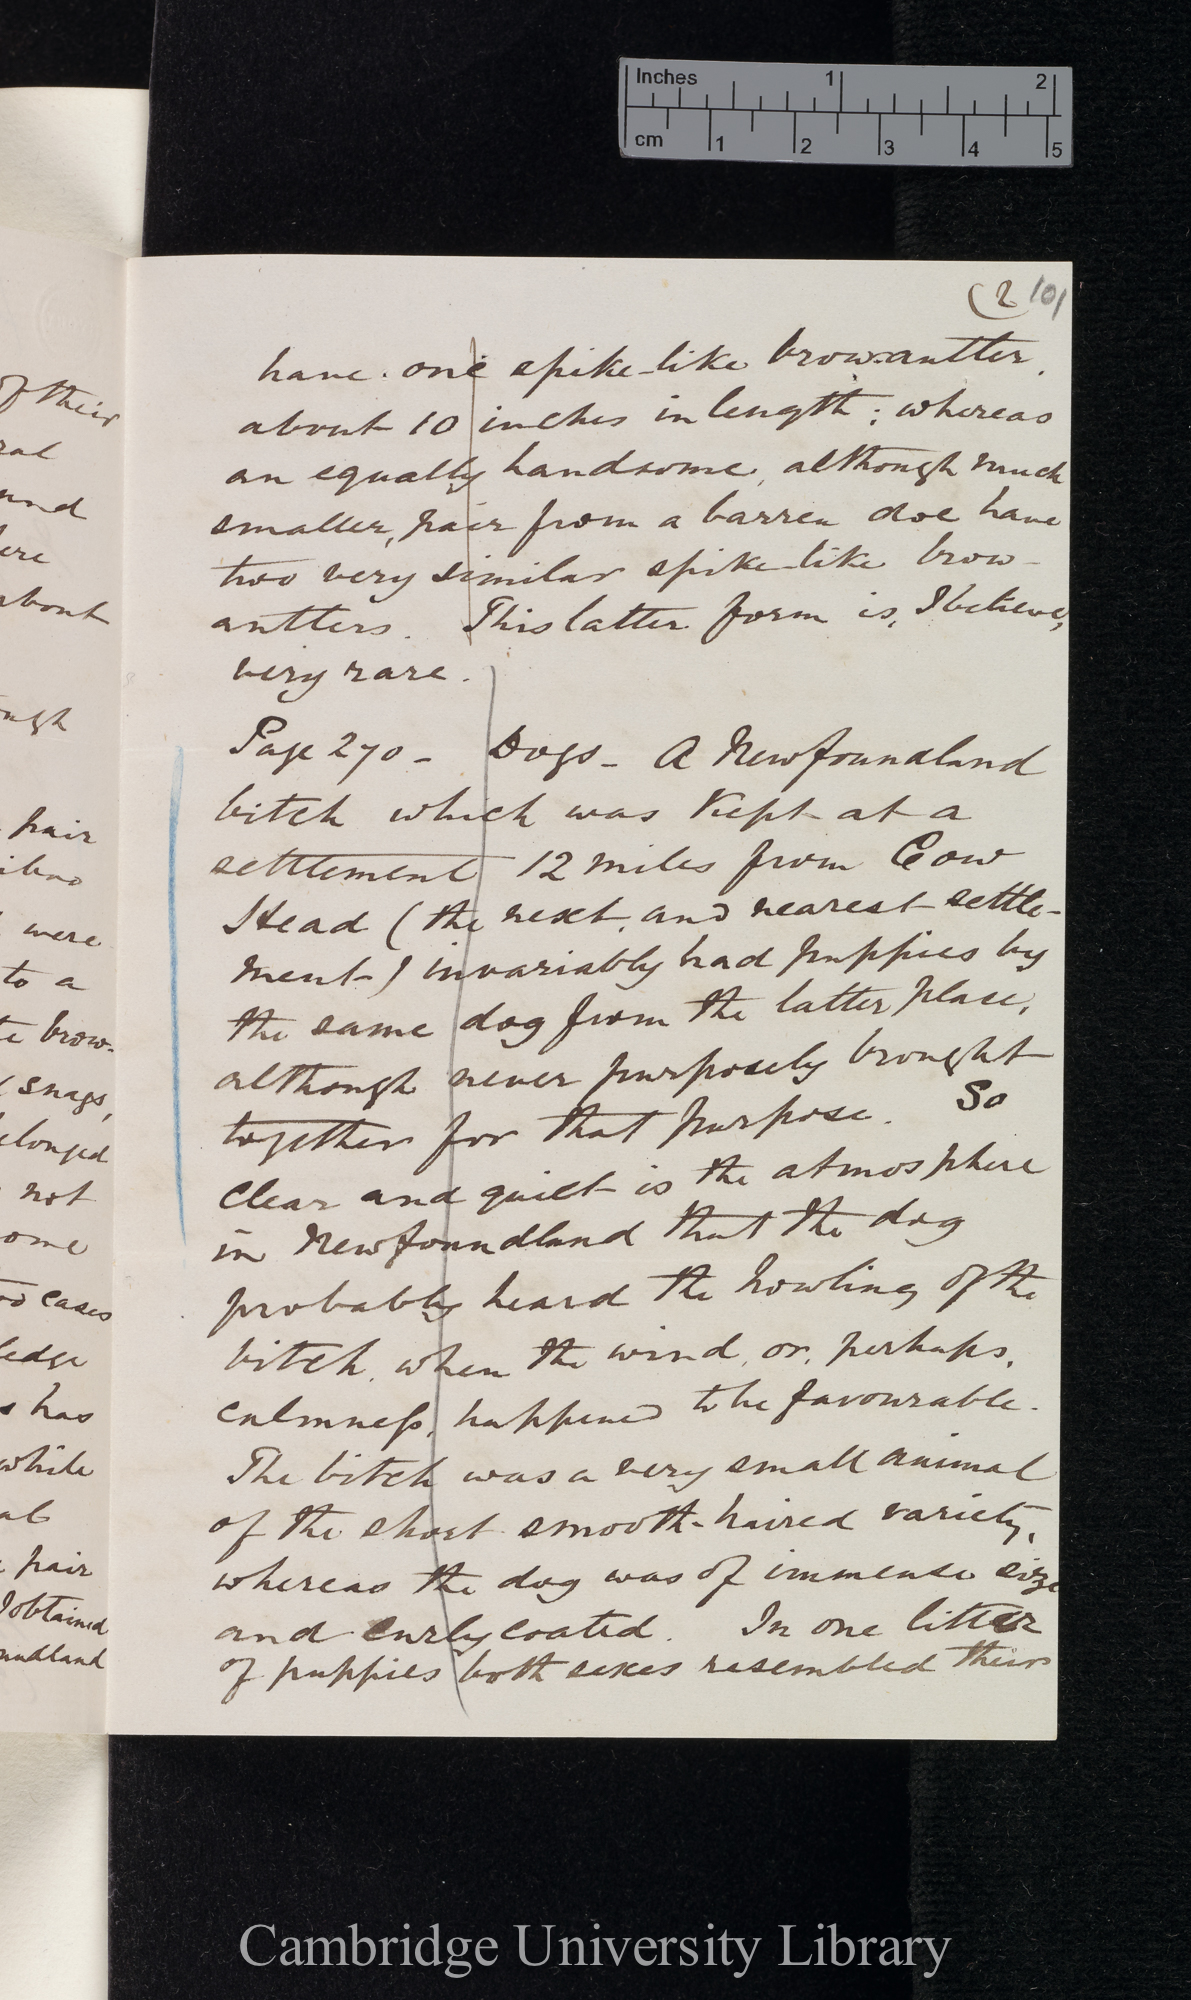 Inches 1 2
cm 1 2 3 4 5
(2 101
have one spike-like brow-antler,
about 10 inches in length; whereas
an equally handsome, although much
smaller, pair from a barren doe have
two very similar spike-like brow-
antlers. This latter form is, I believe,
very rare.
Page 270 - Dogs - A Newfoundland
bitch which was kept at a
settlement 12 miles from Cow
Head (the next, and nearest settle-
ment) invariably had puppies by
the same dog from the latter place,
although never purposely brought
together for that purpose. So
clear and quiet is the atmosphere
in Newfoundland that the dog
probably heard the howling of the
bitch, when the wind, or, perhaps,
calmness, happened to be favourable.
The bitch was a very small animal
of the short smooth-haired variety,
whereas the dog was of immense size
and curly coated. In one litter
of puppies both sexes resembled their
of their
ral
und
ere
about
ugh
pair
were
to a
brow-
snags,
elonged
not
ome
cases
ledge
s has
while
al
pair
I obtained
undland
Cambridge University Library